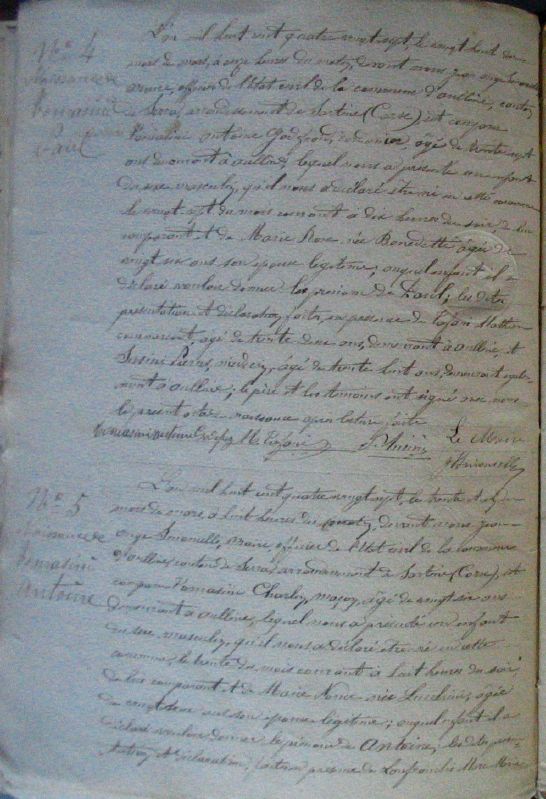 N° 4
Naissance de
Tomasini
Paul
L'an mil huit cent quatre vingt sept, le vingt huit du
mois de mars, à onze heures du matin, devant nous Jean ange
maire, officier de l'Etat civil de la commune d'aullène, canton
de Serra, arrondissement de Sartène (Corse), est comparu
Tomasini Antoine âgé de trente sept
ans domicilié à aullène, lequel nous a présenté un enfant
du sexe masculin, qu'il nous a déclaré être né en cette commune
le vingt sept du mois courant à dix heures du soir, de lui
comparant et de Marie Rose née Benedetti âgée de
vingt six ans son épouse légitime; auquel enfant il a
déclaré vouloir donner le prénom de Paul; les dites
présentation et déclaration faites en présence de
âgé de trente deux ans, demeurant à aullène, et
Susini Pierre, âgé de trente huit ans, demeurant égale-
ment à aullène; le père et les témoins ont signé avec nous
le présent acte naissance après lecture faite
Le Maire
N° 5
Naissance de
Tomasini
Antoine
L'an mil huit cent quatre vingt sept, le trente et
mois de mars, à huit heures du devant nous Jean
ange Simonelli, Maire, officier de l'Etat civil de la commune
d'aullène, canton de Serra, arrondissement de Sartène (Corse), est
comparu Tomasini Charles, maçon, âgé de vingt six ans
demeurant à aullène, lequel nous a présenté un enfant
du sexe masculin, qu'il nous a déclaré être né en cette
commune, le trente du mois courant à huit heures du soir,
de lui comparant et de Marie née âgée
de vingt ans son épouse légitime; auquel enfant il a
déclaré vouloir donner le prénom de Antoine; les dites présen-
tation et déclaration faites en présence de